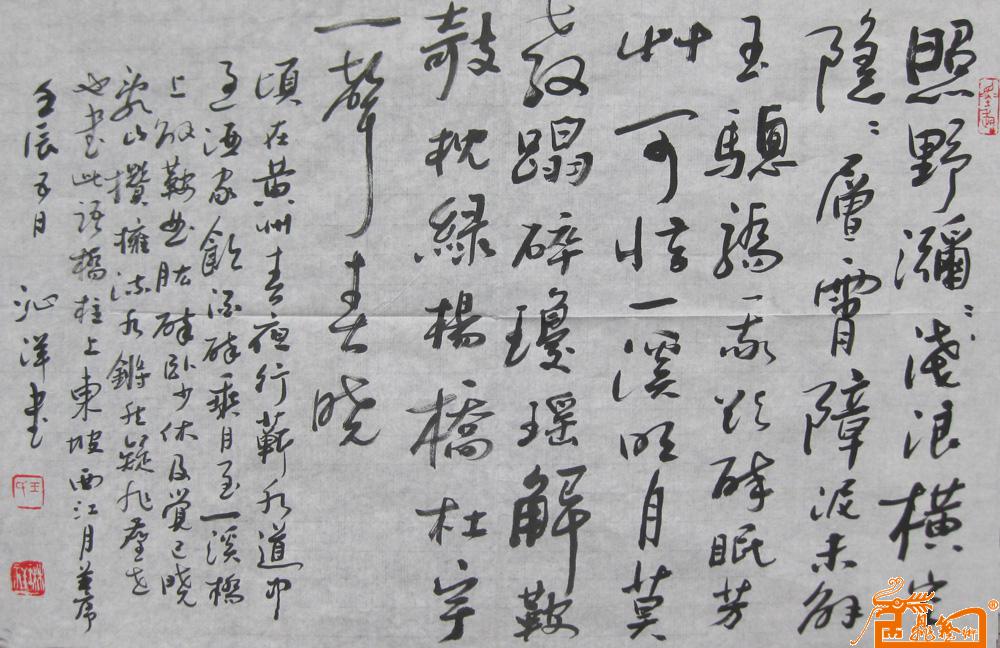 照野瀰〻淺浪橫空
隱〻層霄障泥未解
玉驄驕我欲醉眠芳
艸可惜一溪明月莫
教蹋碎瓊瑤解鞍
攲枕綠楊橋杜宇
一聲春曉
頃在黃州春夜行蘄水道中
過酒家飲酒醉乘月至一溪橋
上解鞍曲肱醉臥少休及覺已曉
亂山攢擁流水鏘然疑非塵世
也書此語橋柱上東坡西江月並序
壬辰五月
沁洋書